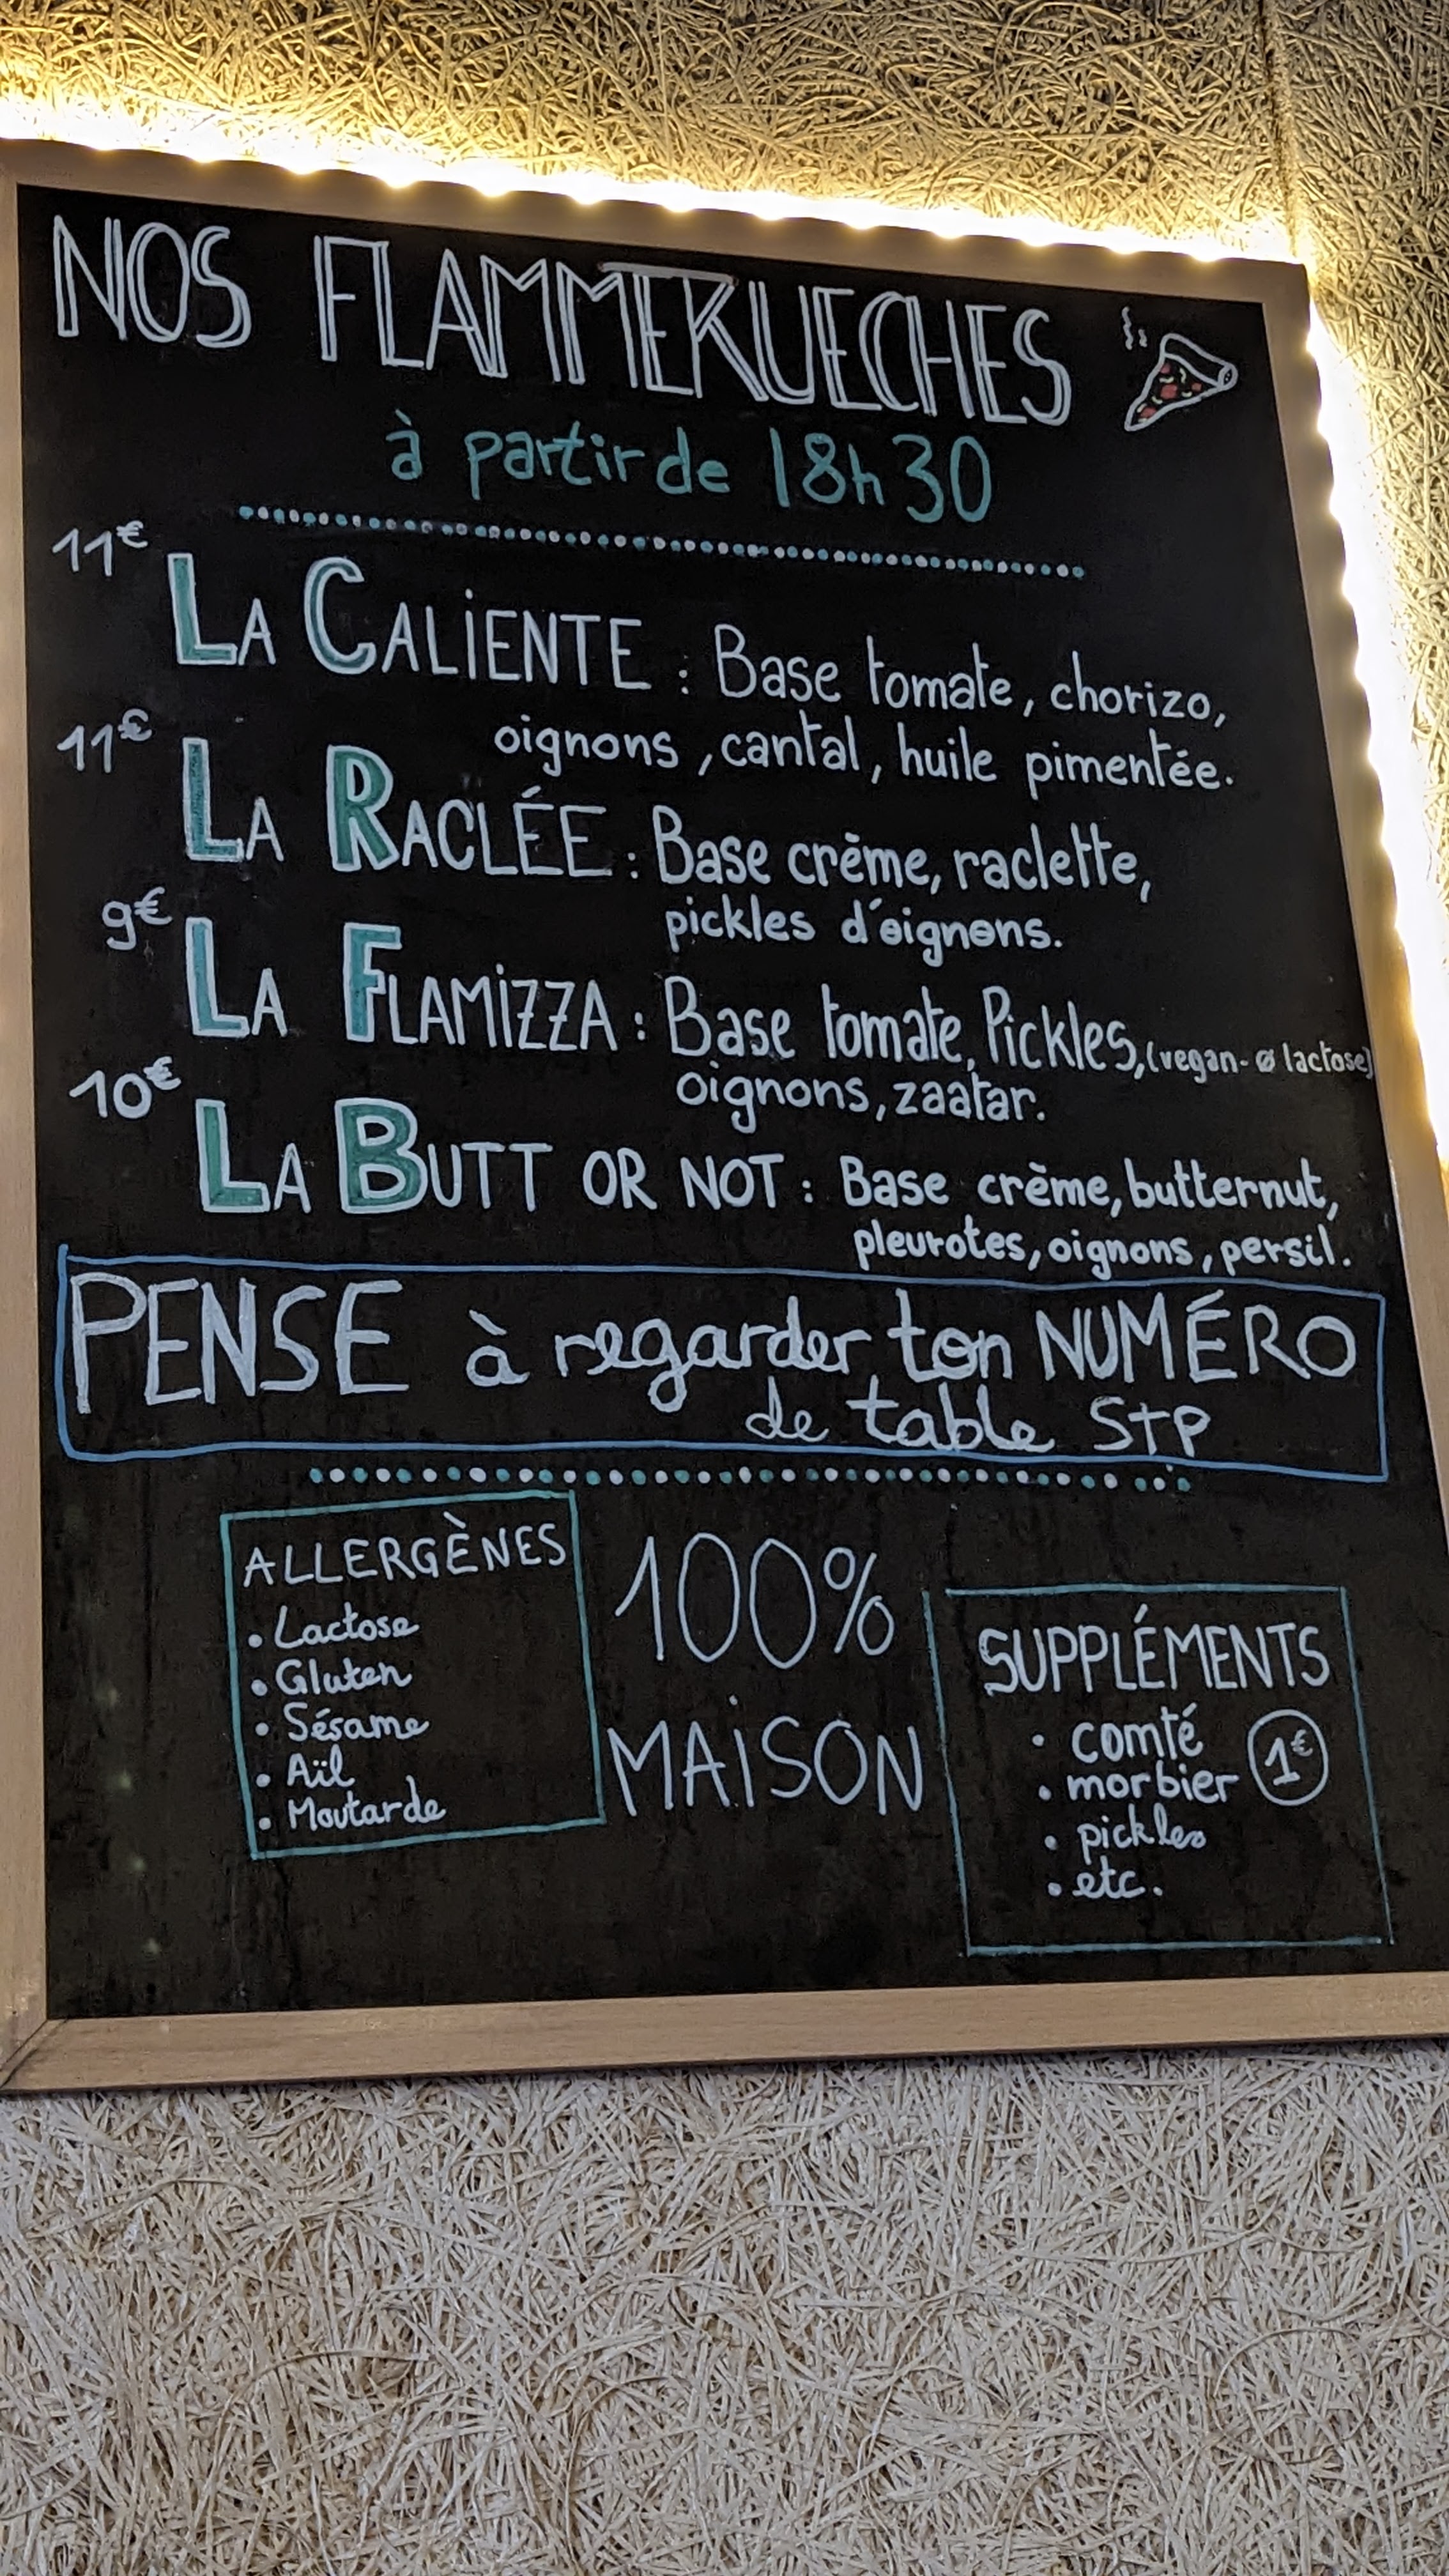 NOS FLAMMEKUECHES
à partir de 18h30
11€
LA CALiENTE : Base tomate, chorizo,
oignons, cantal, huile pimentée.
11€
LA RACLÉE : Base crème, raclette,
pickles d'oignons.
9€
LA FLAMiZZA : Base tomate, Pickles, (vegan - ø lactose)
oignons, zaatar.
10€
LA BUTT OR NOT : Base crème, butternut,
pleurotes, oignons, persil.
PENSE à regarder ton NUMÉRO
de table STP
ALLERGÈNES
• Lactose
• Gluten
• Sésame
• Aïl
• Moutarde
100%
MAiSON
SUPPLÉMENTS
• comté
• morbier 1€
• pickles
• etc.